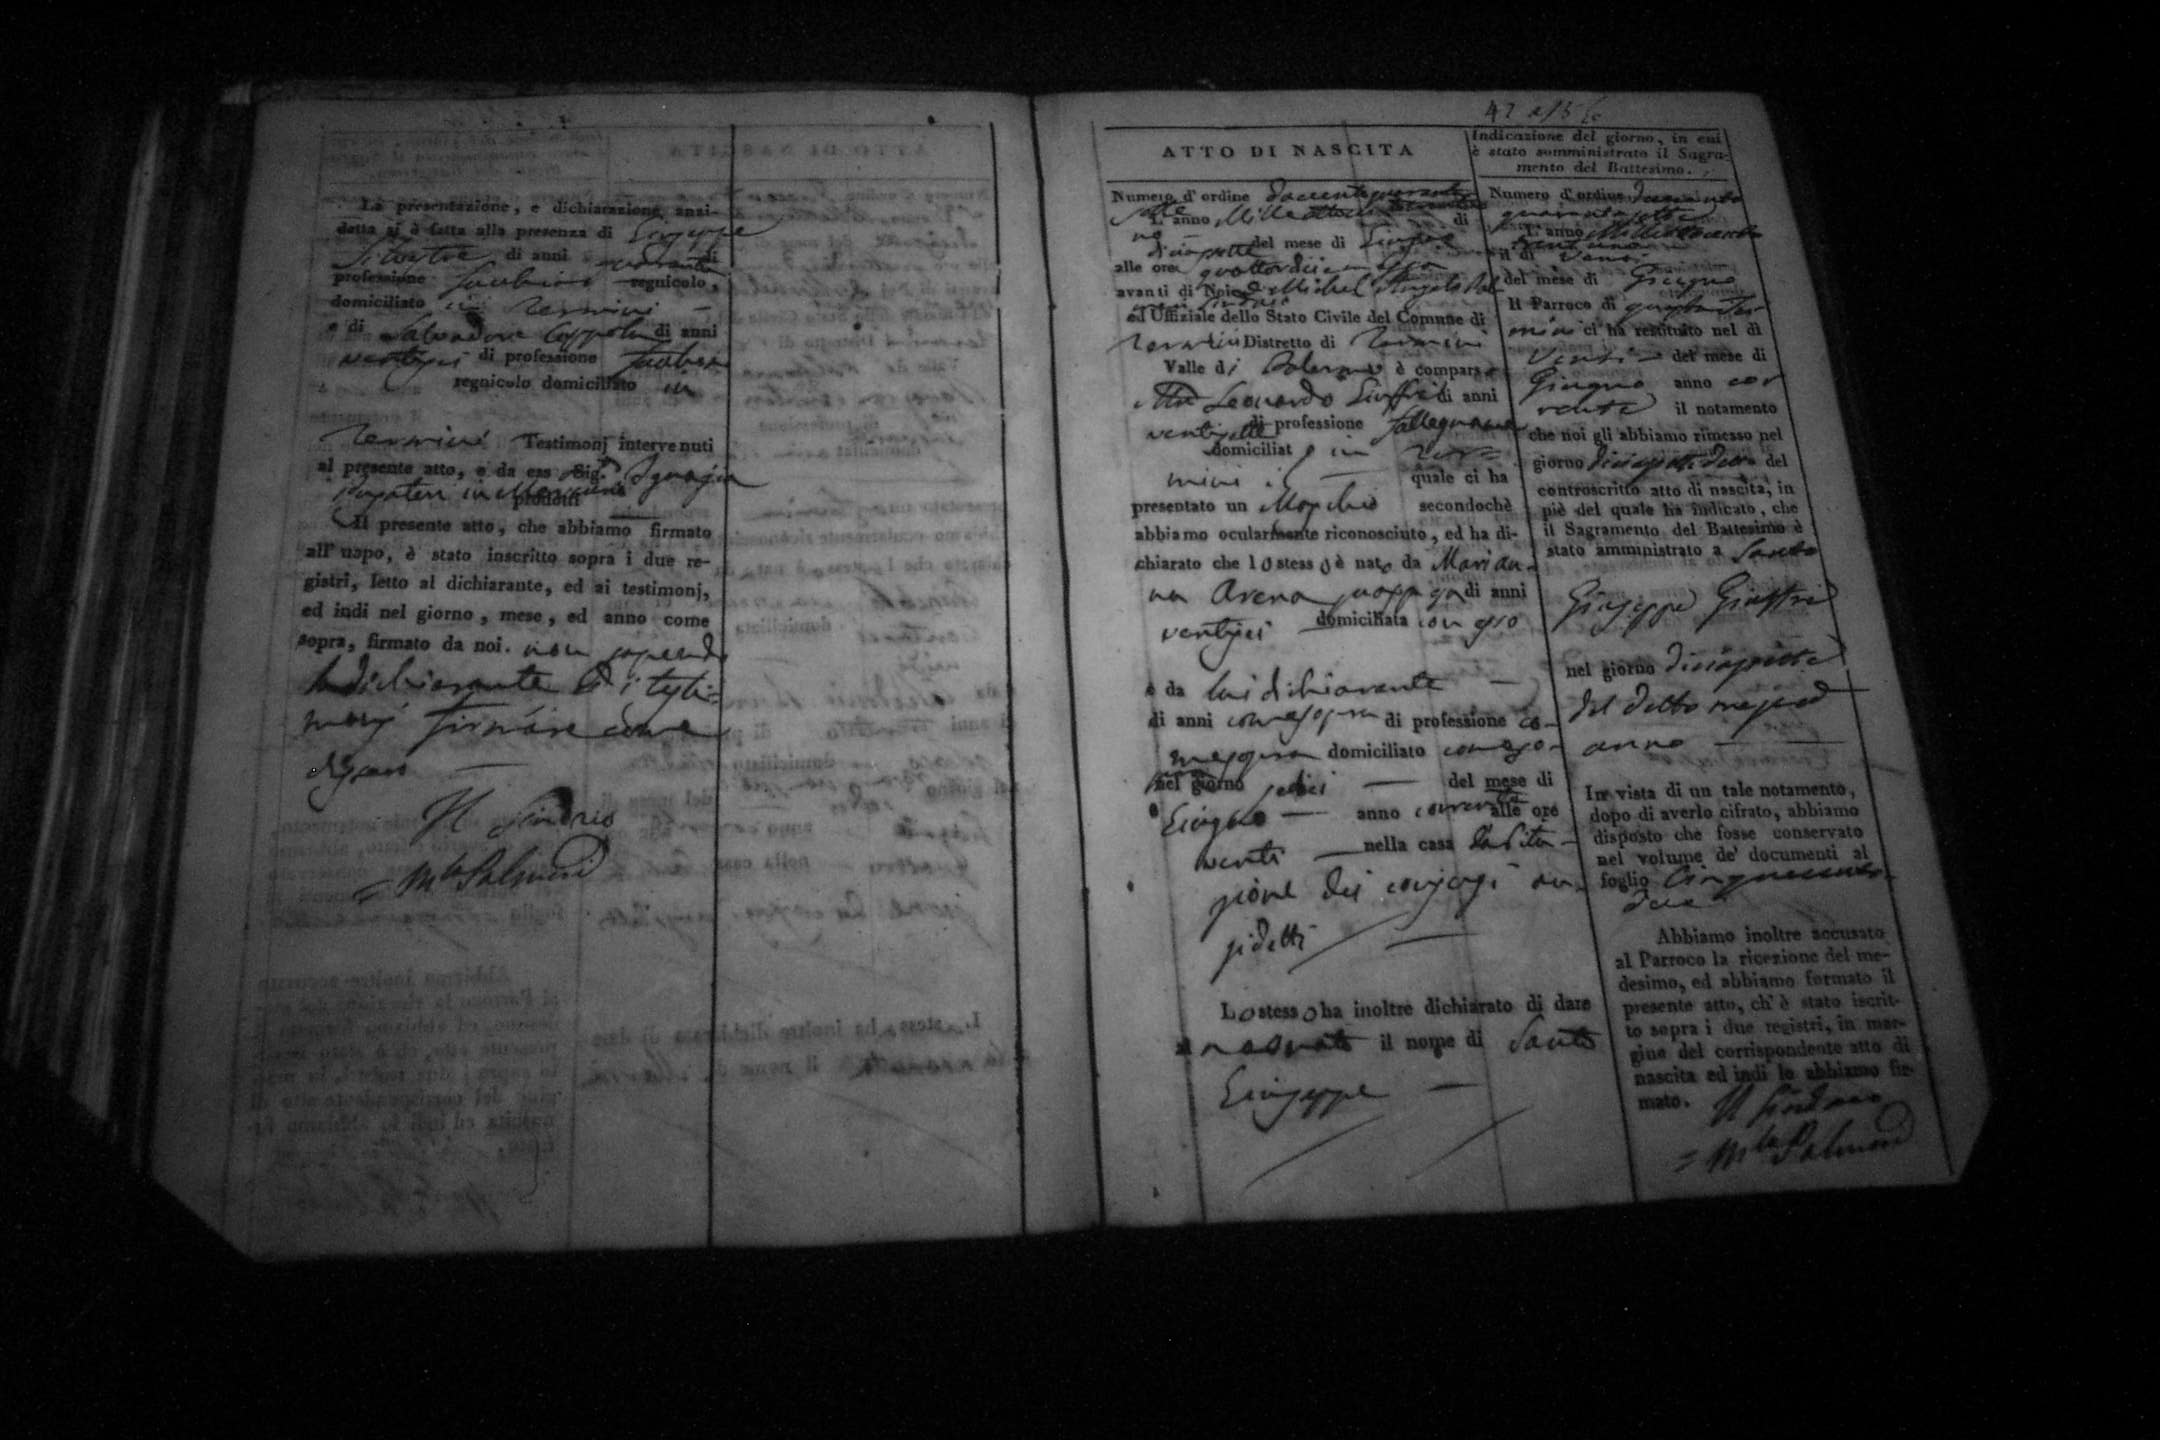 La presentazione, e dichiarazione anzi-
detta si è fatta alla presenza di Giuseppe
di anni quaranta di
professione regnicolo,
domiciliato in Termini
e di Salvadore Coppola di anni
ventisei di professione
regnicolo domiciliato in
Termini Testimonj intervenuti
al presente atto, e da ess Sig.ra Ignazia
prodotti
Il presente atto, che abbiamo firmato
all'uopo, è stato inscritto sopra i due re-
gistri, letto al dichiarante, ed ai testimonj,
ed indi nel giorno, mese, ed anno come
sopra, firmato da noi. non sapendo
il dichiarante ed i testi-
monj firmare come
dissero
Il Sindaco
Palmeri
42
ATTO DI NASCITA
Numero d'ordine duecentoquaranta
sette
L'anno Milleottocento trentu- di
no
diciasette del mese di Giugno
alle ore quattordici
avanti di Noi D. Michel Angelo Pal
meri Sindaco
ed Uffiziale dello Stato Civile del Comune di
Termini Distretto di Termini
Valle di Palermo è comparso
Leonardo Giuffrè di anni
ventisette di professione Fallegname
domiciliato in Ter-
mini il quale ci ha
presentato un Maschio secondochè
abbiamo ocularmente riconosciuto, ed ha di-
chiarato che lo stesso è nato da Marian-
na Arena di anni
ventisei domiciliata
e da lui dichiarante
di anni come sopra di professione co-
me sopra domiciliato come so-
pra
nel giorno sedici del mese di
Giugno anno corrente alle ore
venti nella casa d'abita-
zione dei conjugi su-
sidetti
Lo stesso ha inoltre dichiarato di dare
al neonato il nome di Santo
Giuseppe
Indicazione del giorno, in cui
è stato somministrato il Sagra-
mento del Battesimo.
Numero d'ordine duecento
quarantasette
L'anno Milleottocento
trentuno
il dì venti
del mese di Giugno
Il Parroco di questa Ter
mini ci ha restituito nel dì
venti del mese di
Giugno anno cor
rente il notamento
che noi gli abbiamo rimesso nel
giorno diciasette detto del
controscritto atto di nascita, in
piè del quale ha indicato, che
il Sagramento del Battesimo è
stato amministrato a Santo
Giuseppe Giuffrè
nel giorno diciasette
del detto mese ed
anno
In vista di un tale notamento,
dopo di averlo cifrato, abbiamo
disposto che fosse conservato
nel volume de' documenti al
foglio Cinquecento
due
Abbiamo inoltre accusato
al Parroco la ricezione del me-
desimo, ed abbiamo formato il
presente atto, ch'è stato iscrit-
to sopra i due registri, in mar-
gine del corrispondente atto di
nascita ed indi lo abbiamo fir-
mato.
Il Sindaco
Palmeri